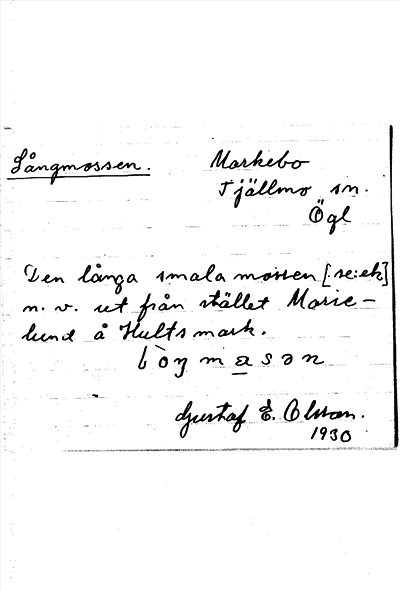 Långmossen.
Markebo
Tjällmo sn.
Ögl
Den långa smala mossen [se: ek]
n. v. ut från stället Marie-
lund å Hults mark.
lòŋmasən
Gustaf E. Olsson.
1930